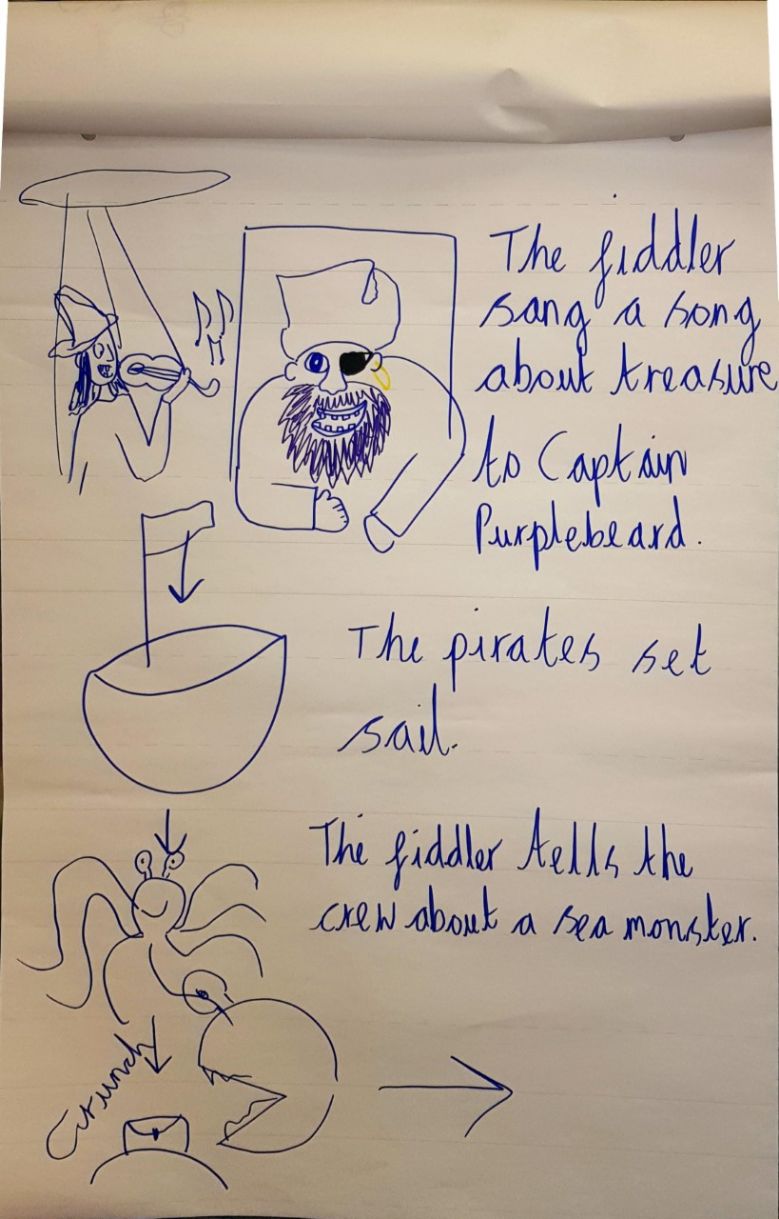 The fiddler
sang a song
about treasure
to Captain
Purplebeard.
The pirates set
sail.
The fiddler tells the
crew about a sea monster.
Crunch